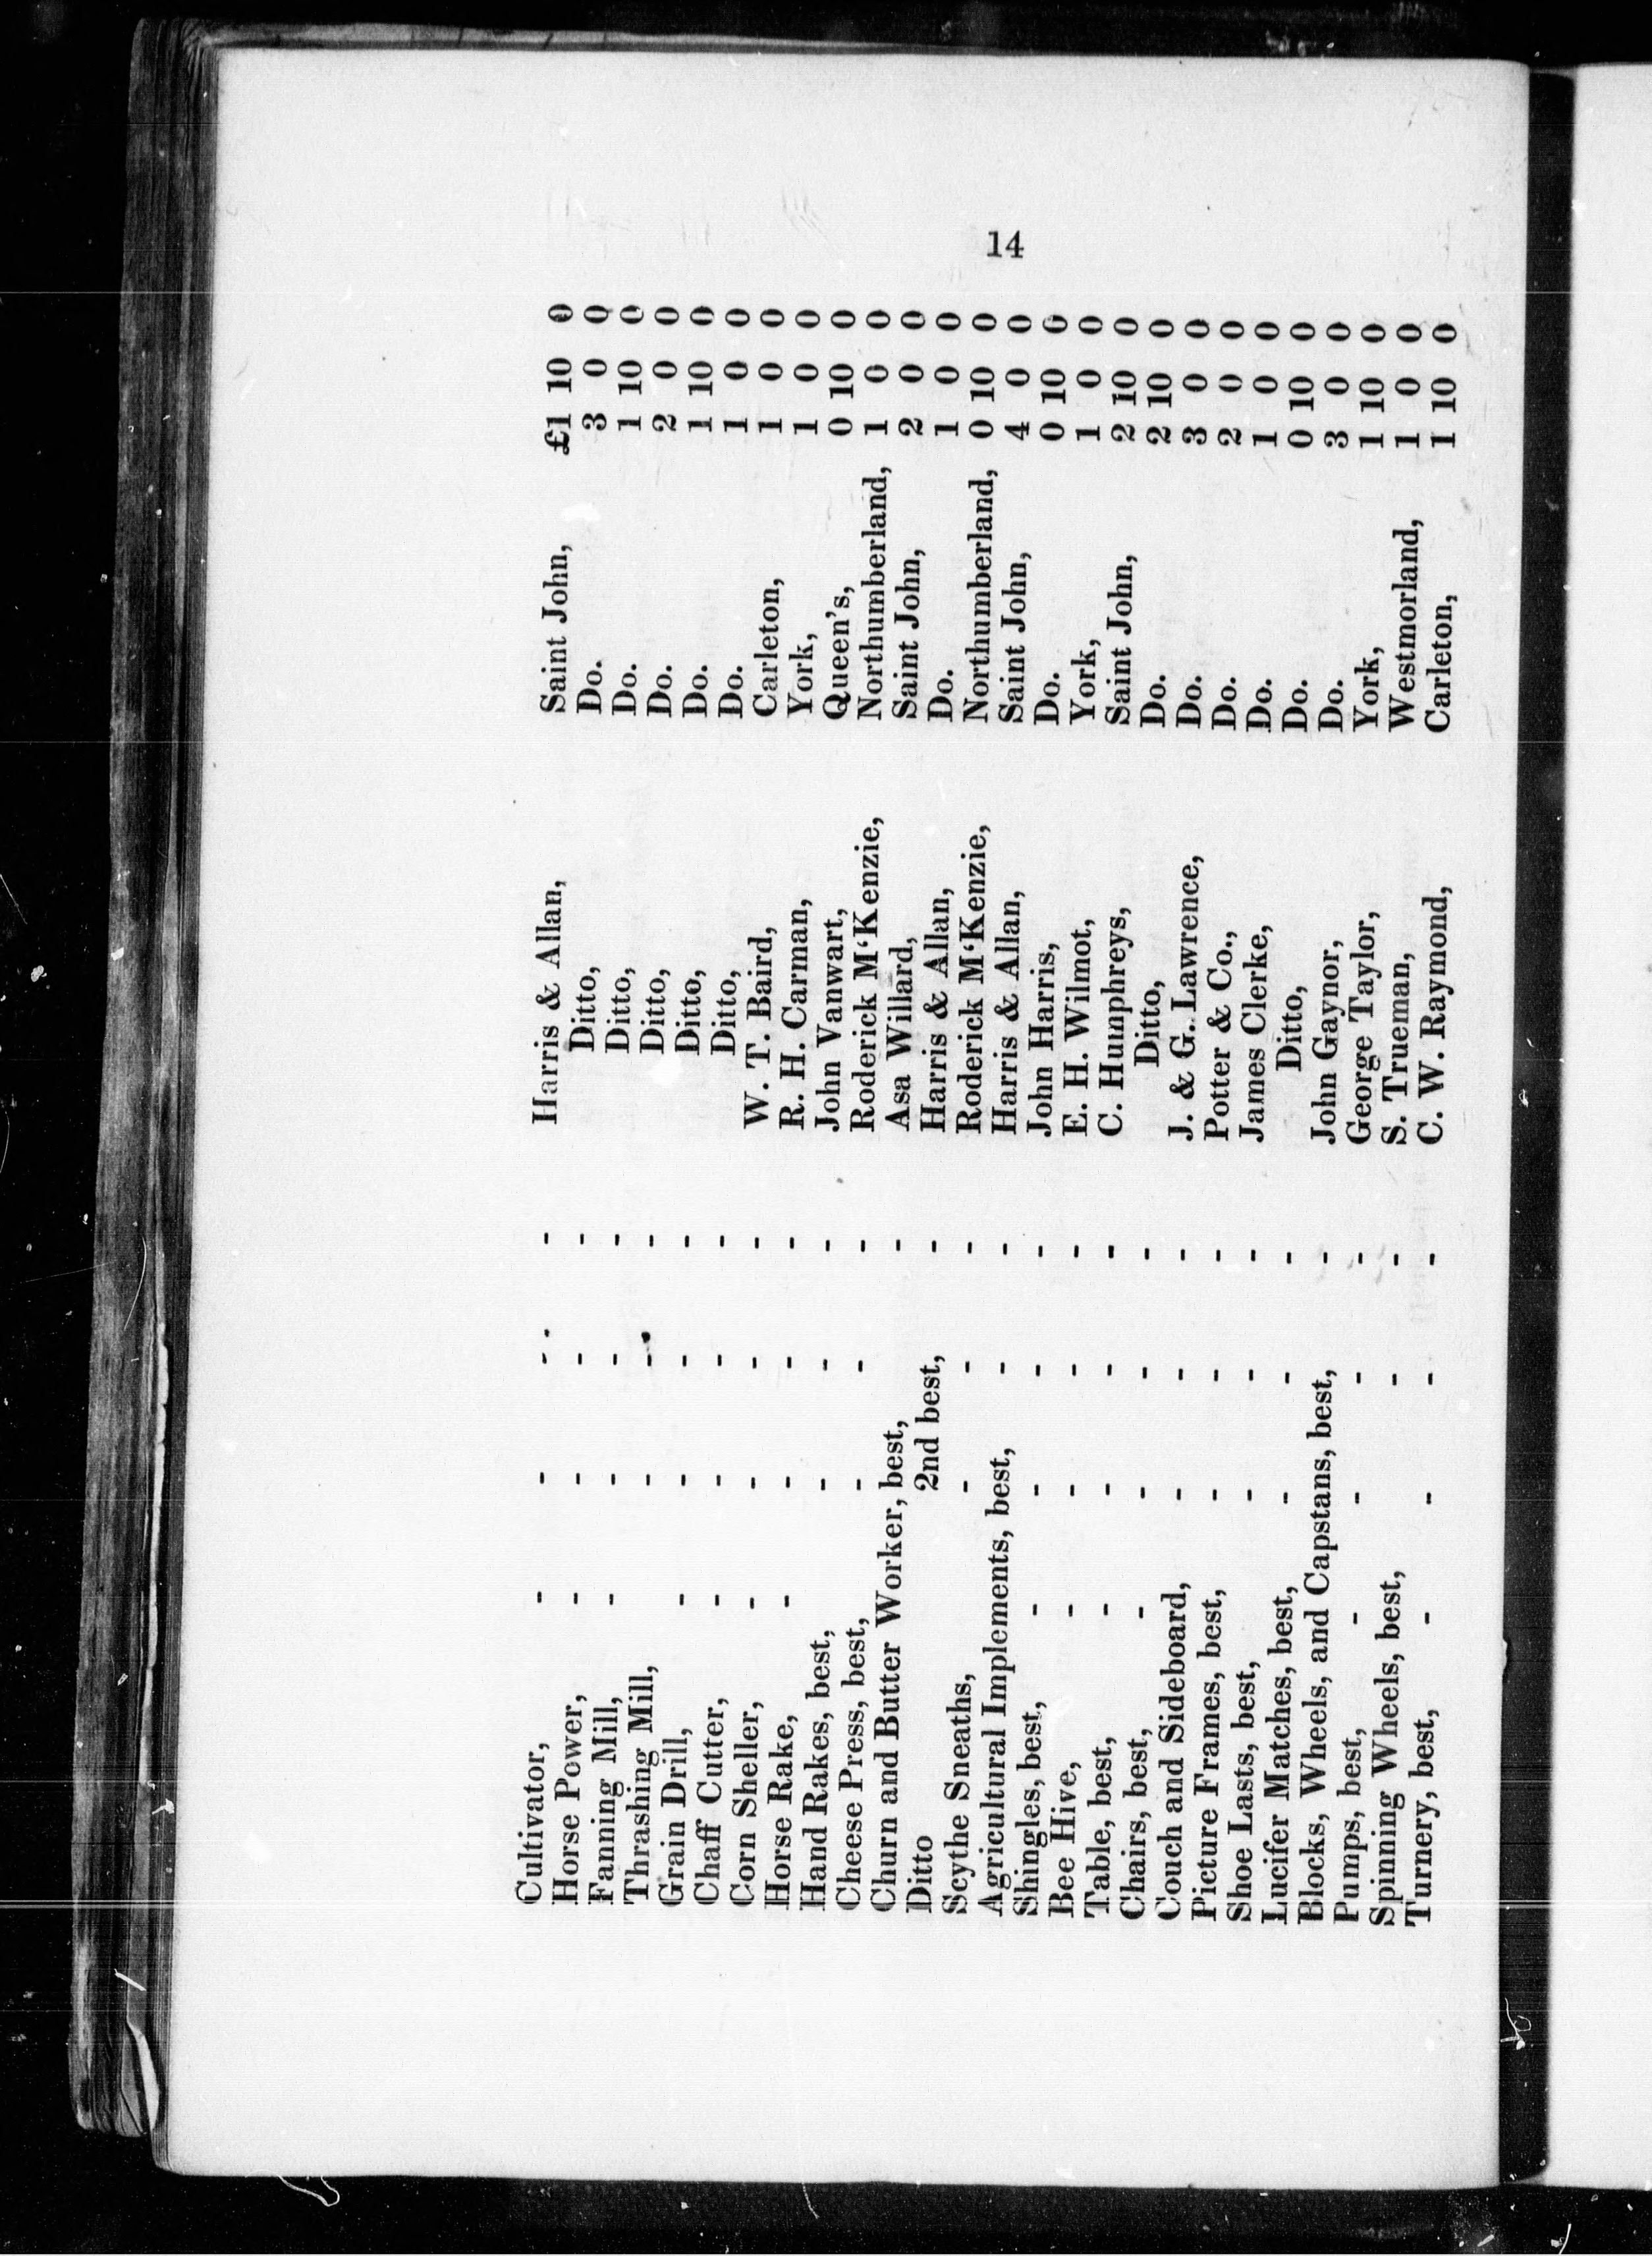 14
Cultivator, - - - - Harris & Allan, Saint John, £1 10 0
Horse Power, - - - - Ditto, Do. 3 0 0
Fanning Mill, - - - - Ditto, Do. 1 10 0
Thrashing Mill, - - - Ditto, Do. 2 0 0
Grain Drill, - - - - Ditto, Do. 1 10 0
Chaff Cutter, - - - - Ditto, Do. 1 0 0
Corn Sheller, - - - - W. T. Baird, Carleton, 1 0 0
Horse Rake, - - - - R. H. Carman, York, 1 0 0
Hand Rakes, best, - - - John Vanwart, Queen's, 0 10 0
Cheese Press, best, - - - Roderick M‘Kenzie, Northumberland, 1 0 0
Churn and Butter Worker, best, - Asa Willard, Saint John, 2 0 0
Ditto 2nd best, - Harris & Allan, Do. 1 0 0
Scythe Sneaths, - - - Roderick M‘Kenzie, Northumberland, 0 10 0
Agricultural Implements, best, - - Harris & Allan, Saint John, 4 0 0
Shingles, best, - - - - John Harris, Do. 0 10 0
Bee Hive, - - - - E. H. Wilmot, York, 1 0 0
Table, best, - - - - C. Humphreys, Saint John, 2 10 0
Chairs, best, - - - - Ditto, Do. 2 10 0
Couch and Sideboard, - - - J. & G. Lawrence, Do. 3 0 0
Picture Frames, best, - - - Potter & Co., Do. 2 0 0
Shoe Lasts, best, - - - James Clerke, Do. 1 0 0
Lucifer Matches, best, - - - Ditto, Do. 0 10 0
Blocks, Wheels, and Capstans, best, - John Gaynor, Do. 3 0 0
Pumps, best, - - - - George Taylor, York, 1 10 0
Spinning Wheels, best, - - S. Trueman, Westmorland, 1 0 0
Turnery, best, - - - - C. W. Raymond, Carleton, 1 10 0